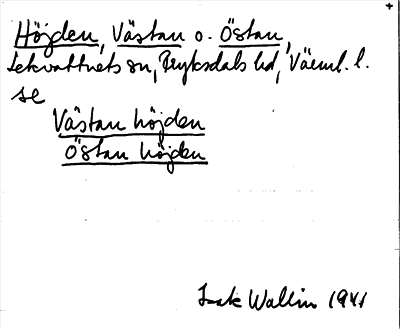 Höjden, Västan o. Östan,
Lekvattnets sn, Fryksdals hd, Värml. l.
se
Västan höjden
Östan höjden
Isak Wallin 1941